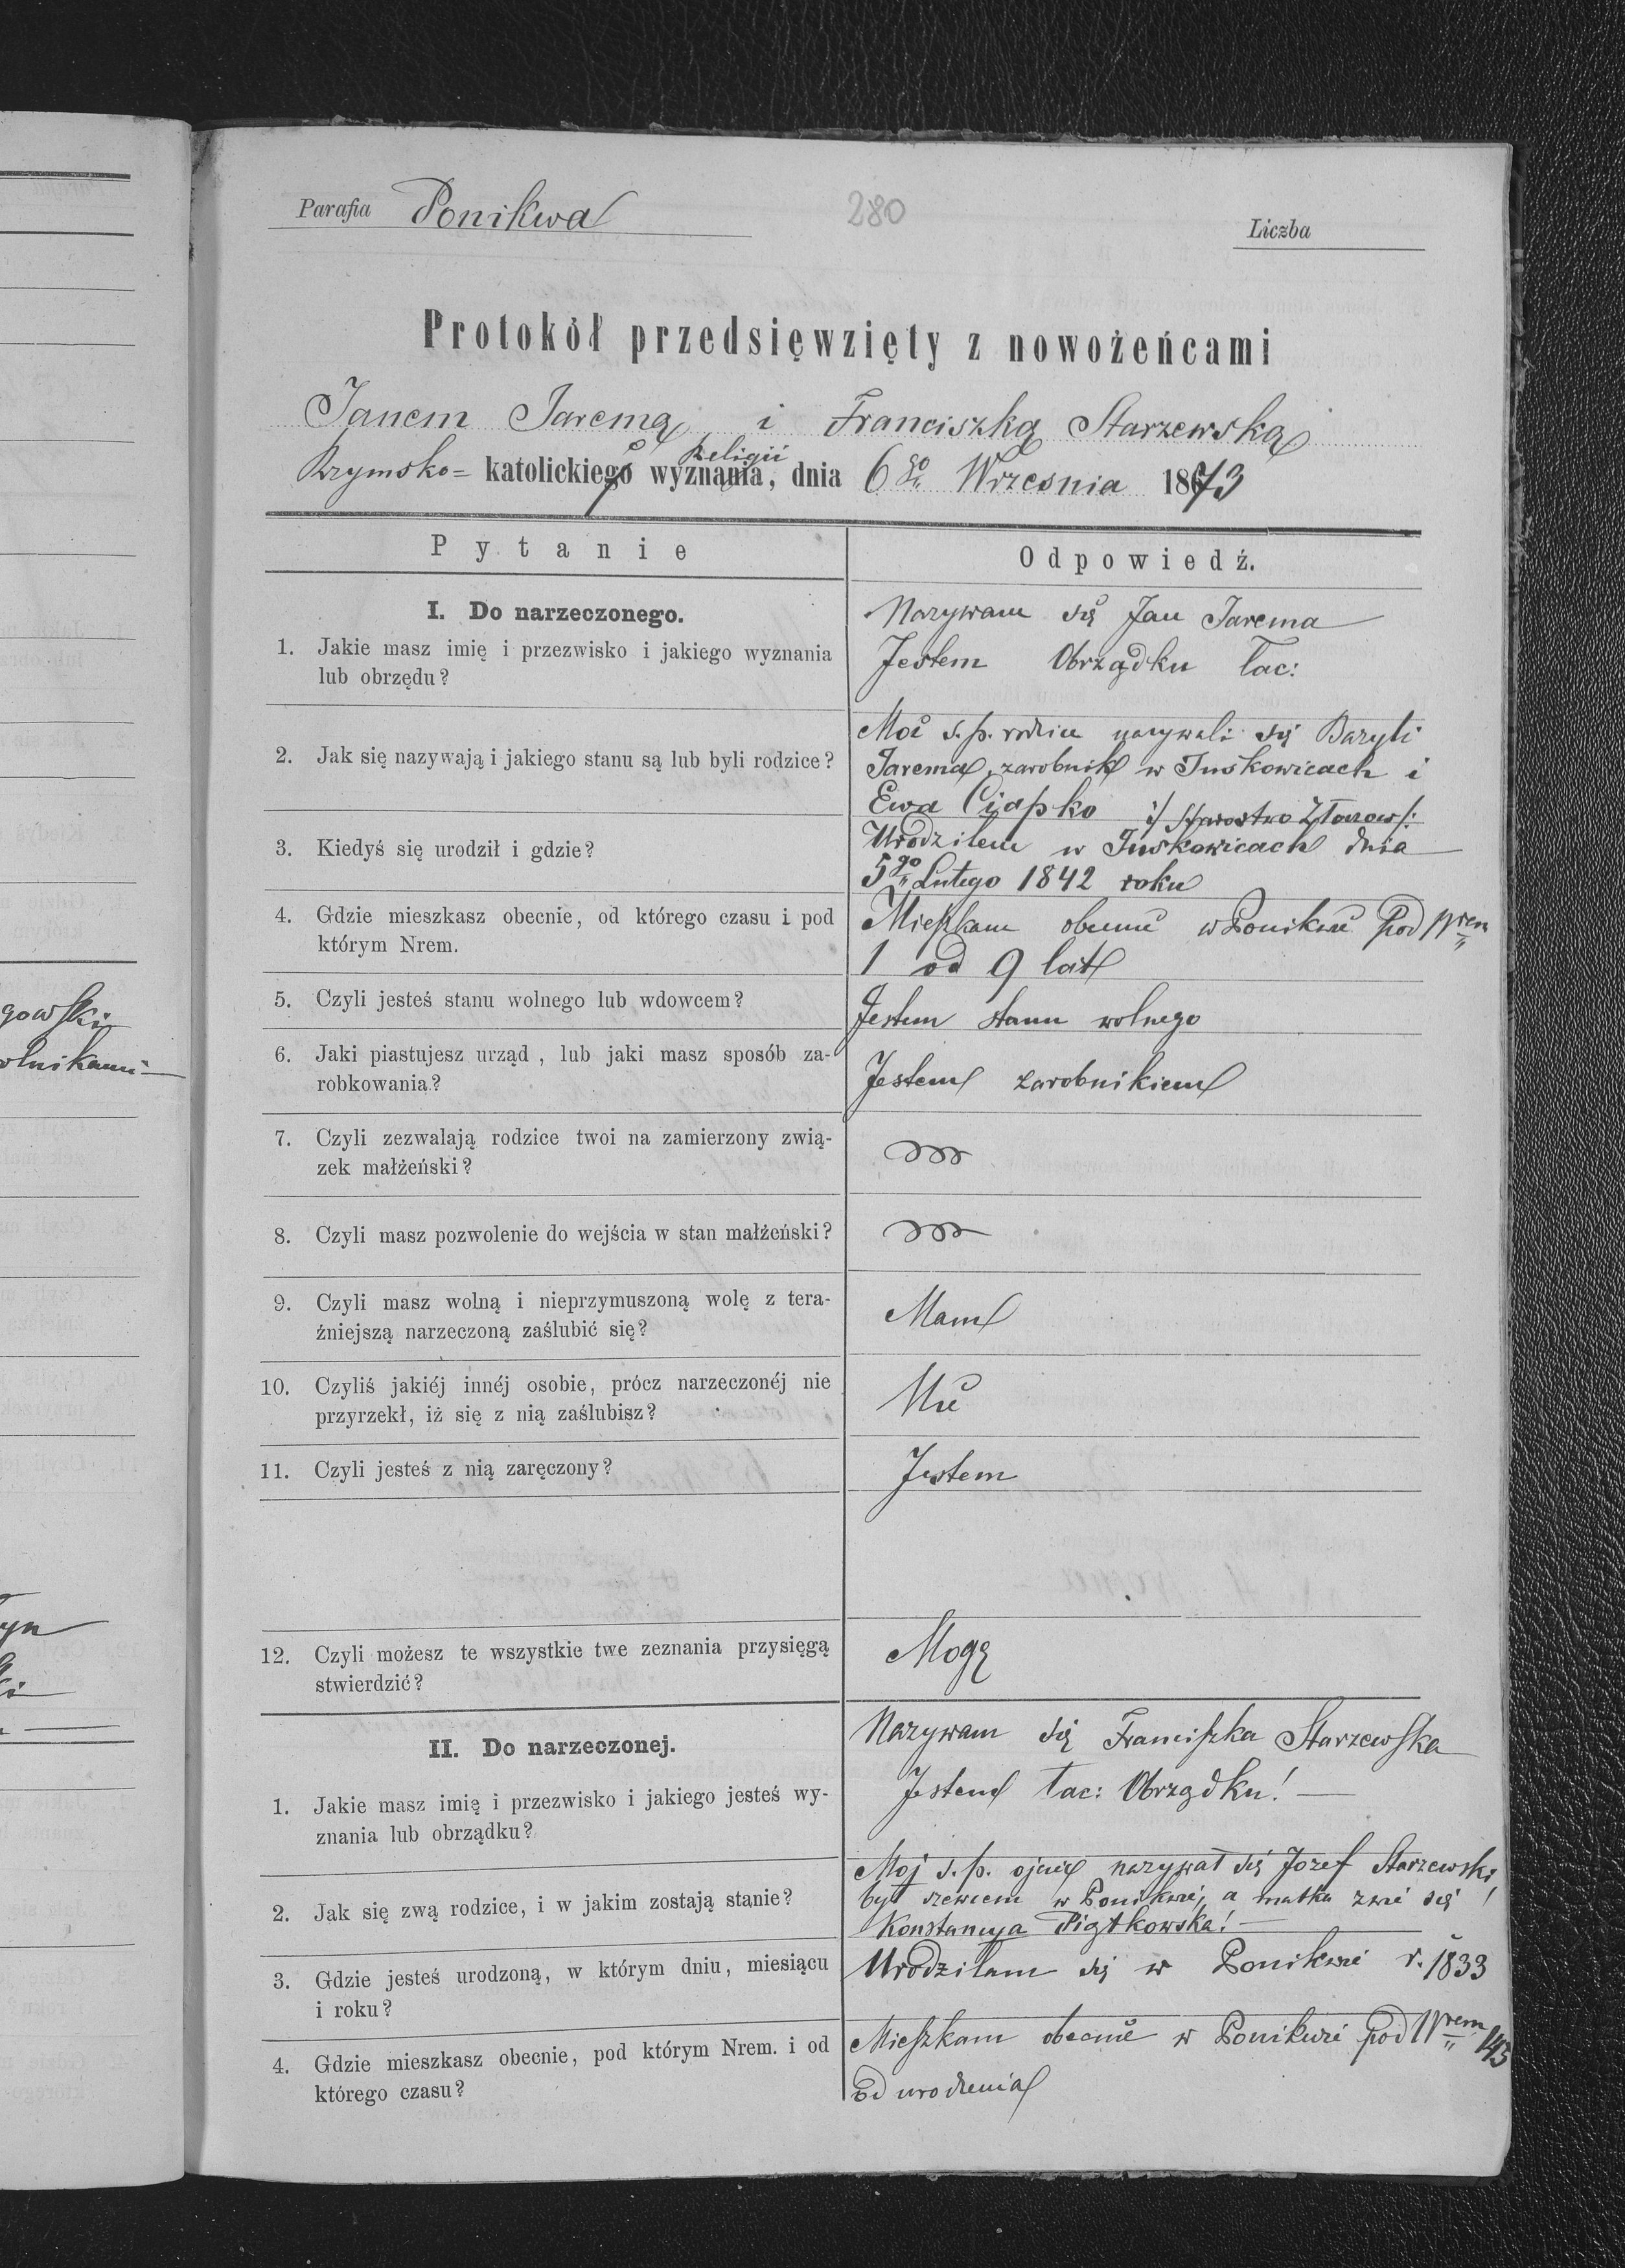 Parafia Ponikwa
280
Liczba
Protokół przedsięwzięty z nowożeńcami
Janem Jaremą i Franciszką Starzewską
Religii
Rzymsko= katolickiego wyznania, dnia 6go Wrzesnia 1873
Pytanie
Odpowiedź.
I. Do narzeczonego.
1. Jakie masz imię i przezwisko i jakiego wyznania
lub obrzędu?
Nazywam się Jan Jarema
Jestem Obrządku łac:
2. Jak się nazywają i jakiego stanu są lub byli rodzice?
Moi s.p. rodzice nazywali się Bazyli
Jarema, zarobnik w Juskowicach i
Ewa Ciapko Starostwo Złoczows:
3. Kiedyś się urodził i gdzie?
Urodziłem w Juskowicach dnia
5go Lutego 1842 roku
4. Gdzie mieszkasz obecnie, od którego czasu i pod
którym Nrem.
Mieszkam obecnie w Ponikwie pod Nrem
1 od 9 lat
5. Czyli jesteś stanu wolnego lub wdowcem?
Jestem stanu wolnego
6. Jaki piastujesz urząd, lub jaki masz sposób za-
robkowania?
Jestem zarobnikiem
7. Czyli zezwalają rodzice twoi na zamierzony zwią-
zek małżeński?
8. Czyli masz pozwolenie do wejścia w stan małżeński?
9. Czyli masz wolną i nieprzymuszoną wolę z tera-
źniejszą narzeczoną zaślubić się?
Mam
10. Czyliś jakiéj innéj osobie, prócz narzeczonéj nie
przyrzekł, iż się z nią zaślubisz?
Nie
11. Czyli jesteś z nią zaręczony?
Jestem
12. Czyli możesz te wszystkie twe zeznania przysięgą
stwierdzić?
Mogę
II. Do narzeczonej.
1. Jakie masz imię i przezwisko i jakiego jesteś wy-
znania lub obrządku?
Nazywam się Franciszka Starzewska
Jestem łac: Obrządku!
2. Jak się zwą rodzice, i w jakim zostają stanie?
Moj s.p. ojciec nazywał się Jozef Starzewski
był szewcem w Ponikwie, a matka zwie się
Konstancya Piątkowska!
3. Gdzie jesteś urodzoną, w którym dniu, miesiącu
i roku?
Urodziłam się w Ponikwie r. 1833
4. Gdzie mieszkasz obecnie, pod którym Nrem. i od
którego czasu?
Mieszkam obecnie w Ponikwie pod Nrem 143
od urodzenia